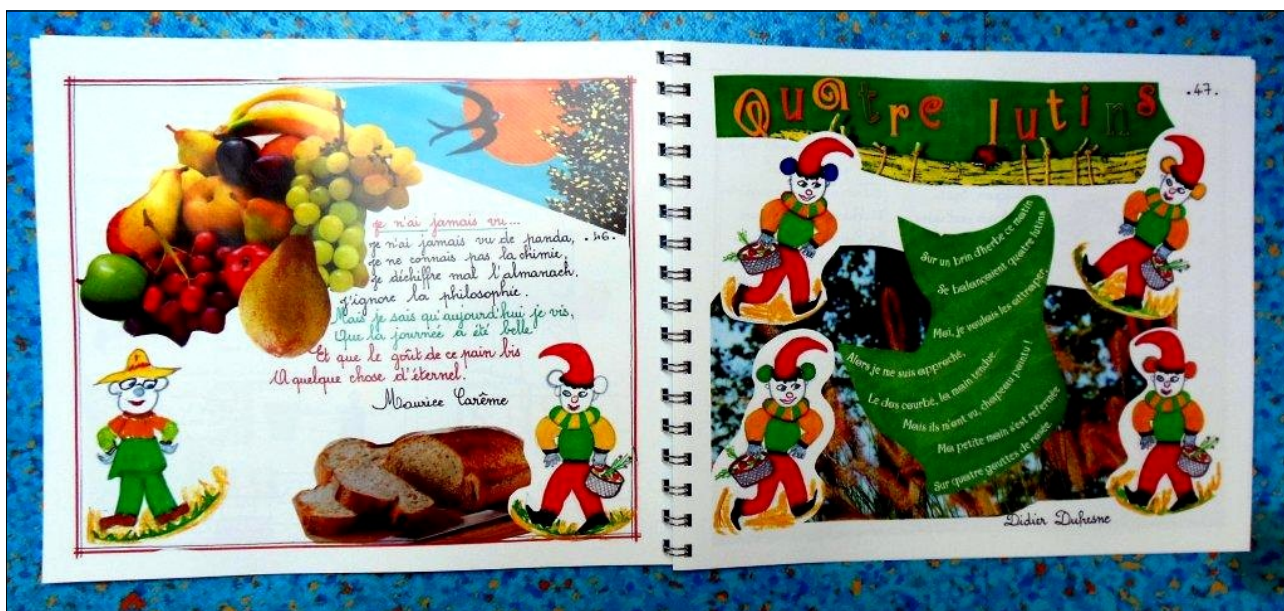 Je n'ai jamais vu...
Je n'ai jamais vu de panda,
Je ne connais pas la chimie,
Je déchiffre mal l'almanach.
J'ignore la philosophie.
Mais je sais qu'aujourd'hui je vis,
Que la journée a été belle
Et que le goût de ce pain bis
A quelque chose d'éternel.
Maurice Carême
.46.
Quatre lutins
.47.
Sur un brin d'herbe ce matin
Se balançaient quatre lutins
Moi, je voulais les attraper,
Alors je me suis approché,
Le dos courbé, la main tendue...
Mais ils m'ont vu, chapeau pointu !
Ma petite main s'est refermée
Sur quatre gouttes de rosée.
Didier Dufresne